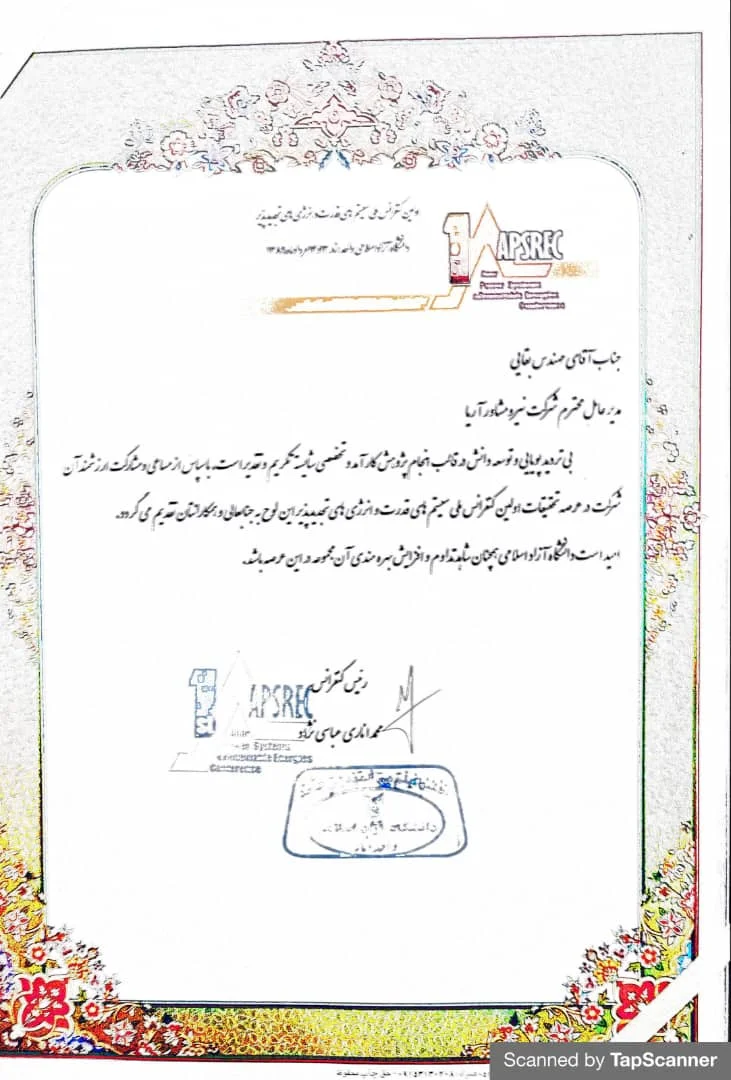 اولین کنفرانس ملی سیستم های قدرت و انرژی های تجدیدپذیر
دانشگاه آزاد اسلامی واحد
1st
APSREC
Power Systems
Renewable Energies
Conference
جناب آقای مهندس بقایی
مدیر عامل محترم شرکت نیرو مشاور آریا
بی تردید پویایی و توسعه دانش در قالب انجام پژوهش کارآمد و تخصصی شایسته تکریم و تقدیر است. با سپاس از مساعی و مشارکت ارزشمند آن
شرکت در عرصه تحقیقات اولین کنفرانس ملی سیستم های قدرت و انرژی های تجدیدپذیر این لوح به جنابعالی و همکارانتان تقدیم می گردد.
امید است دانشگاه آزاد اسلامی همچنان شاهد تداوم و افزایش بهره مندی آن مجموعه در این عرصه باشد.
رئیس کنفرانس
محمد اناری عباسی نژاد
APSREC
Power Systems
Renewable Energies
Conference
دانشگاه آزاد اسلامی
واحد
حق چاپ محفوظ
Scanned by TapScanner